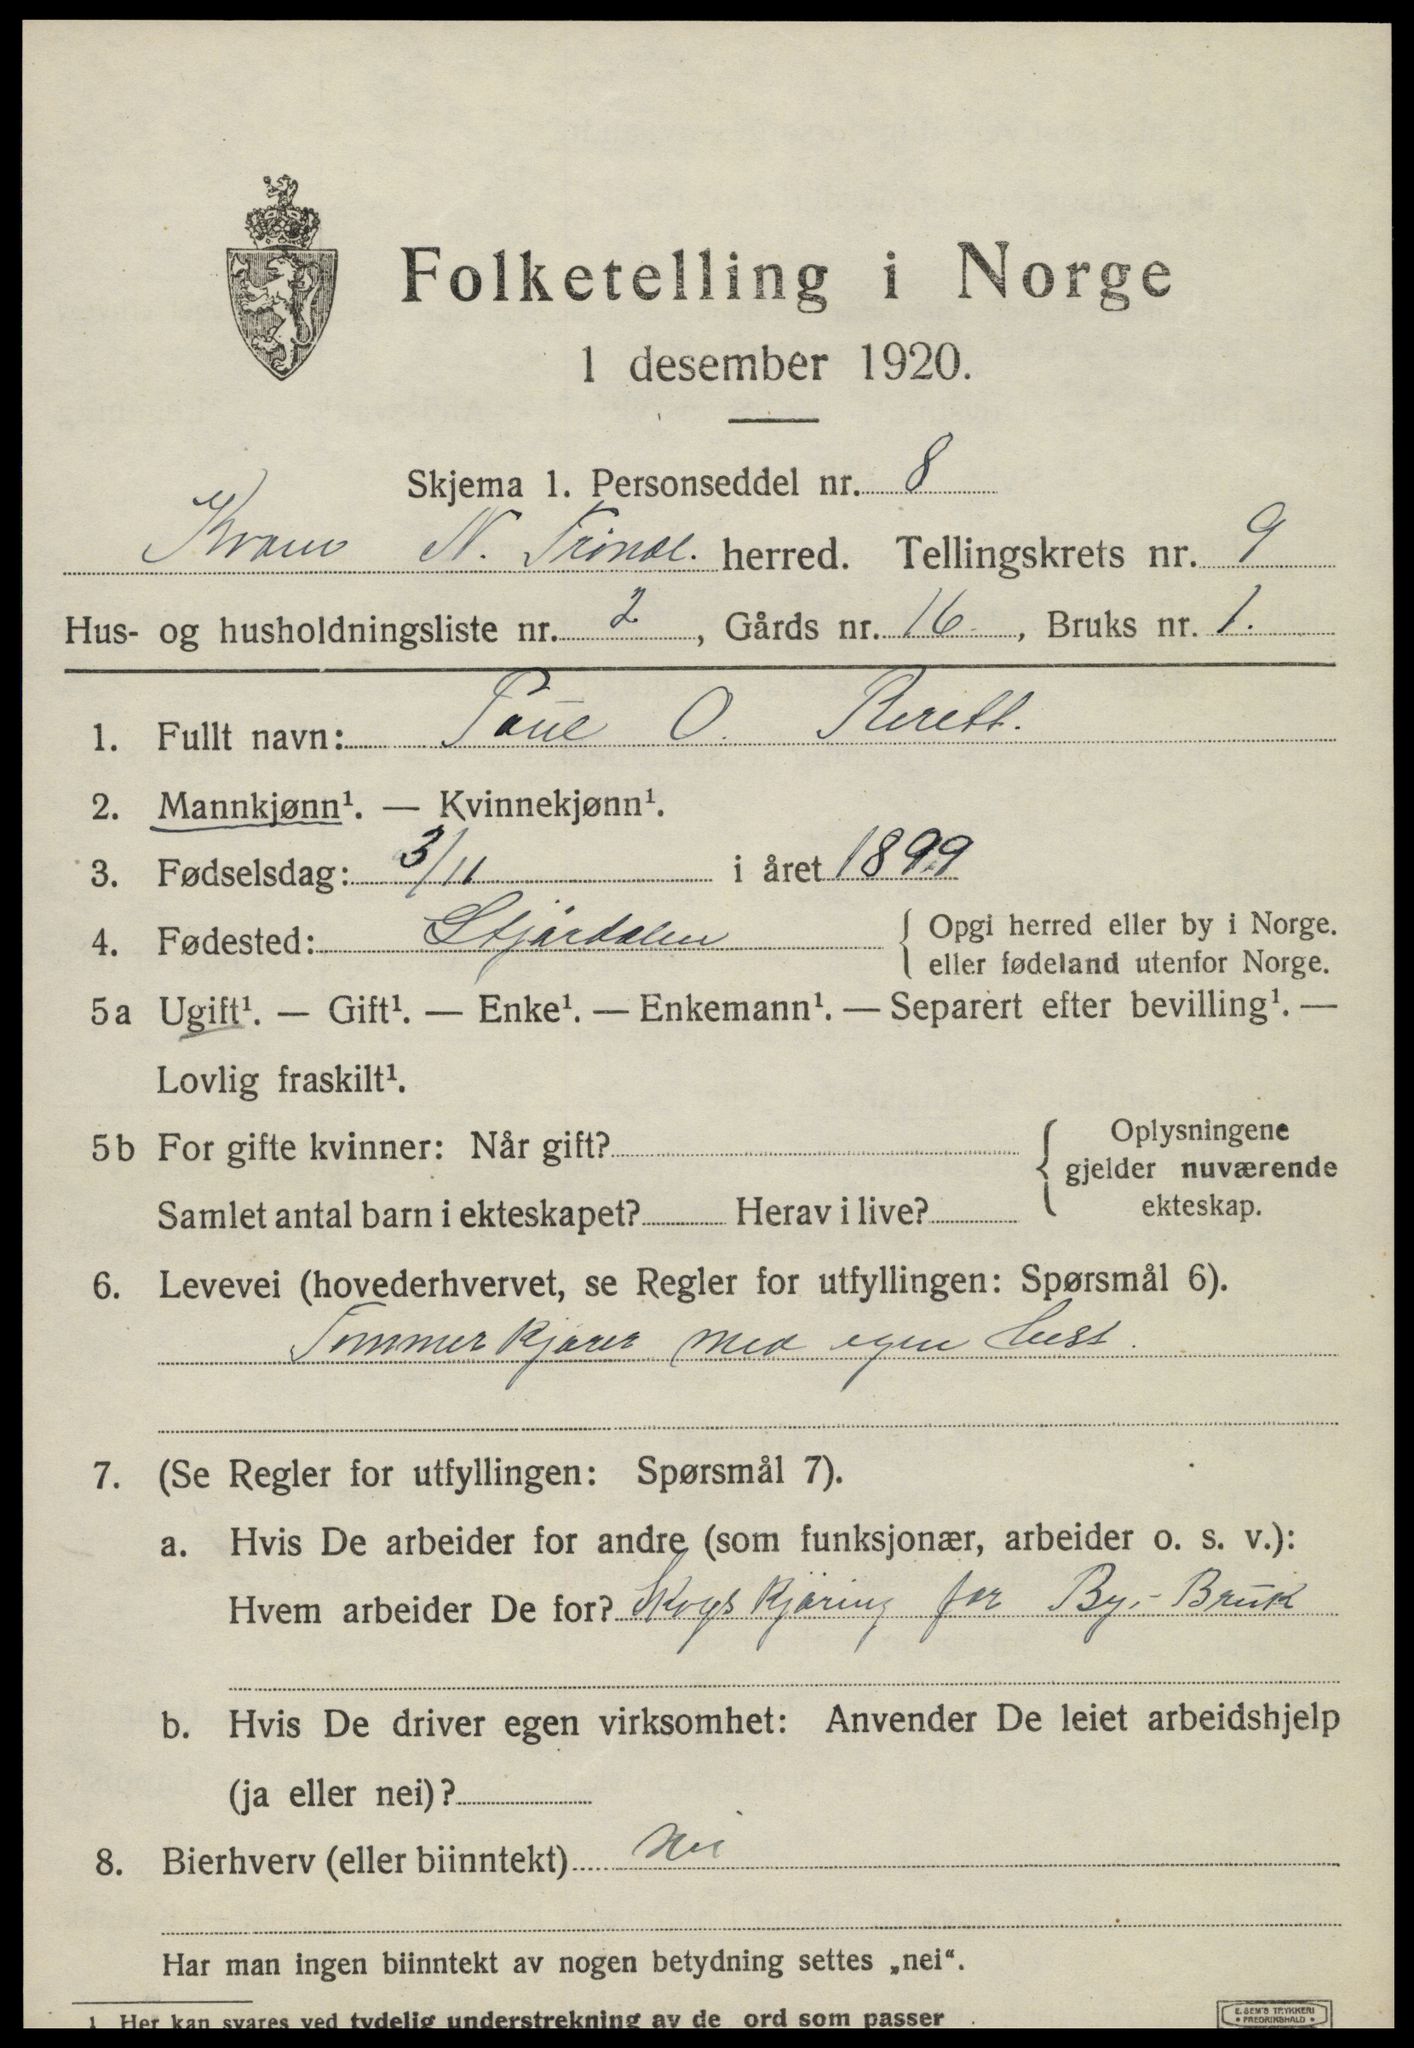 Folketelling i Norge
1 desember 1920.
Skjema 1. Personseddel nr. 8
Kvam N. Trönd. herred. Tellingskrets nr. 9
Hus- og husholdningsliste nr. 2, Gårds nr. 16, Bruks nr. 1.
1. Fullt navn: Paul O.
2. Mannkjønn¹. — Kvinnekjønn¹.
3. Fødselsdag: 3/11 i året 1899
4. Fødested: Stjördalen { Opgi herred eller by i Norge.
eller fødeland utenfor Norge.
5a Ugift¹. — Gift¹. — Enke¹. — Enkemann¹. — Separert efter bevilling¹. —
Lovlig fraskilt¹.
5b For gifte kvinner: Når gift?
Samlet antal barn i ekteskapet? Herav i live?
{ Oplysningene
gjelder nuværende
ekteskap.
6. Levevei (hovederhvervet, se Regler for utfyllingen: Spørsmål 6).
Tømmerkjører med egen hest.
7. (Se Regler for utfyllingen: Spørsmål 7).
a. Hvis De arbeider for andre (som funksjonær, arbeider o. s. v.):
Hvem arbeider De for? Skogskjöring for By.- Bruk
b. Hvis De driver egen virksomhet: Anvender De leiet arbeidshjelp
(ja eller nei)?
8. Bierhverv (eller biinntekt) nei
Har man ingen biinntekt av nogen betydning settes „nei“.
1 Her kan svares ved tydelig understrekning av de ord som passer
E. SEM'S TRYKKERI
• FREDRIKSHALD •